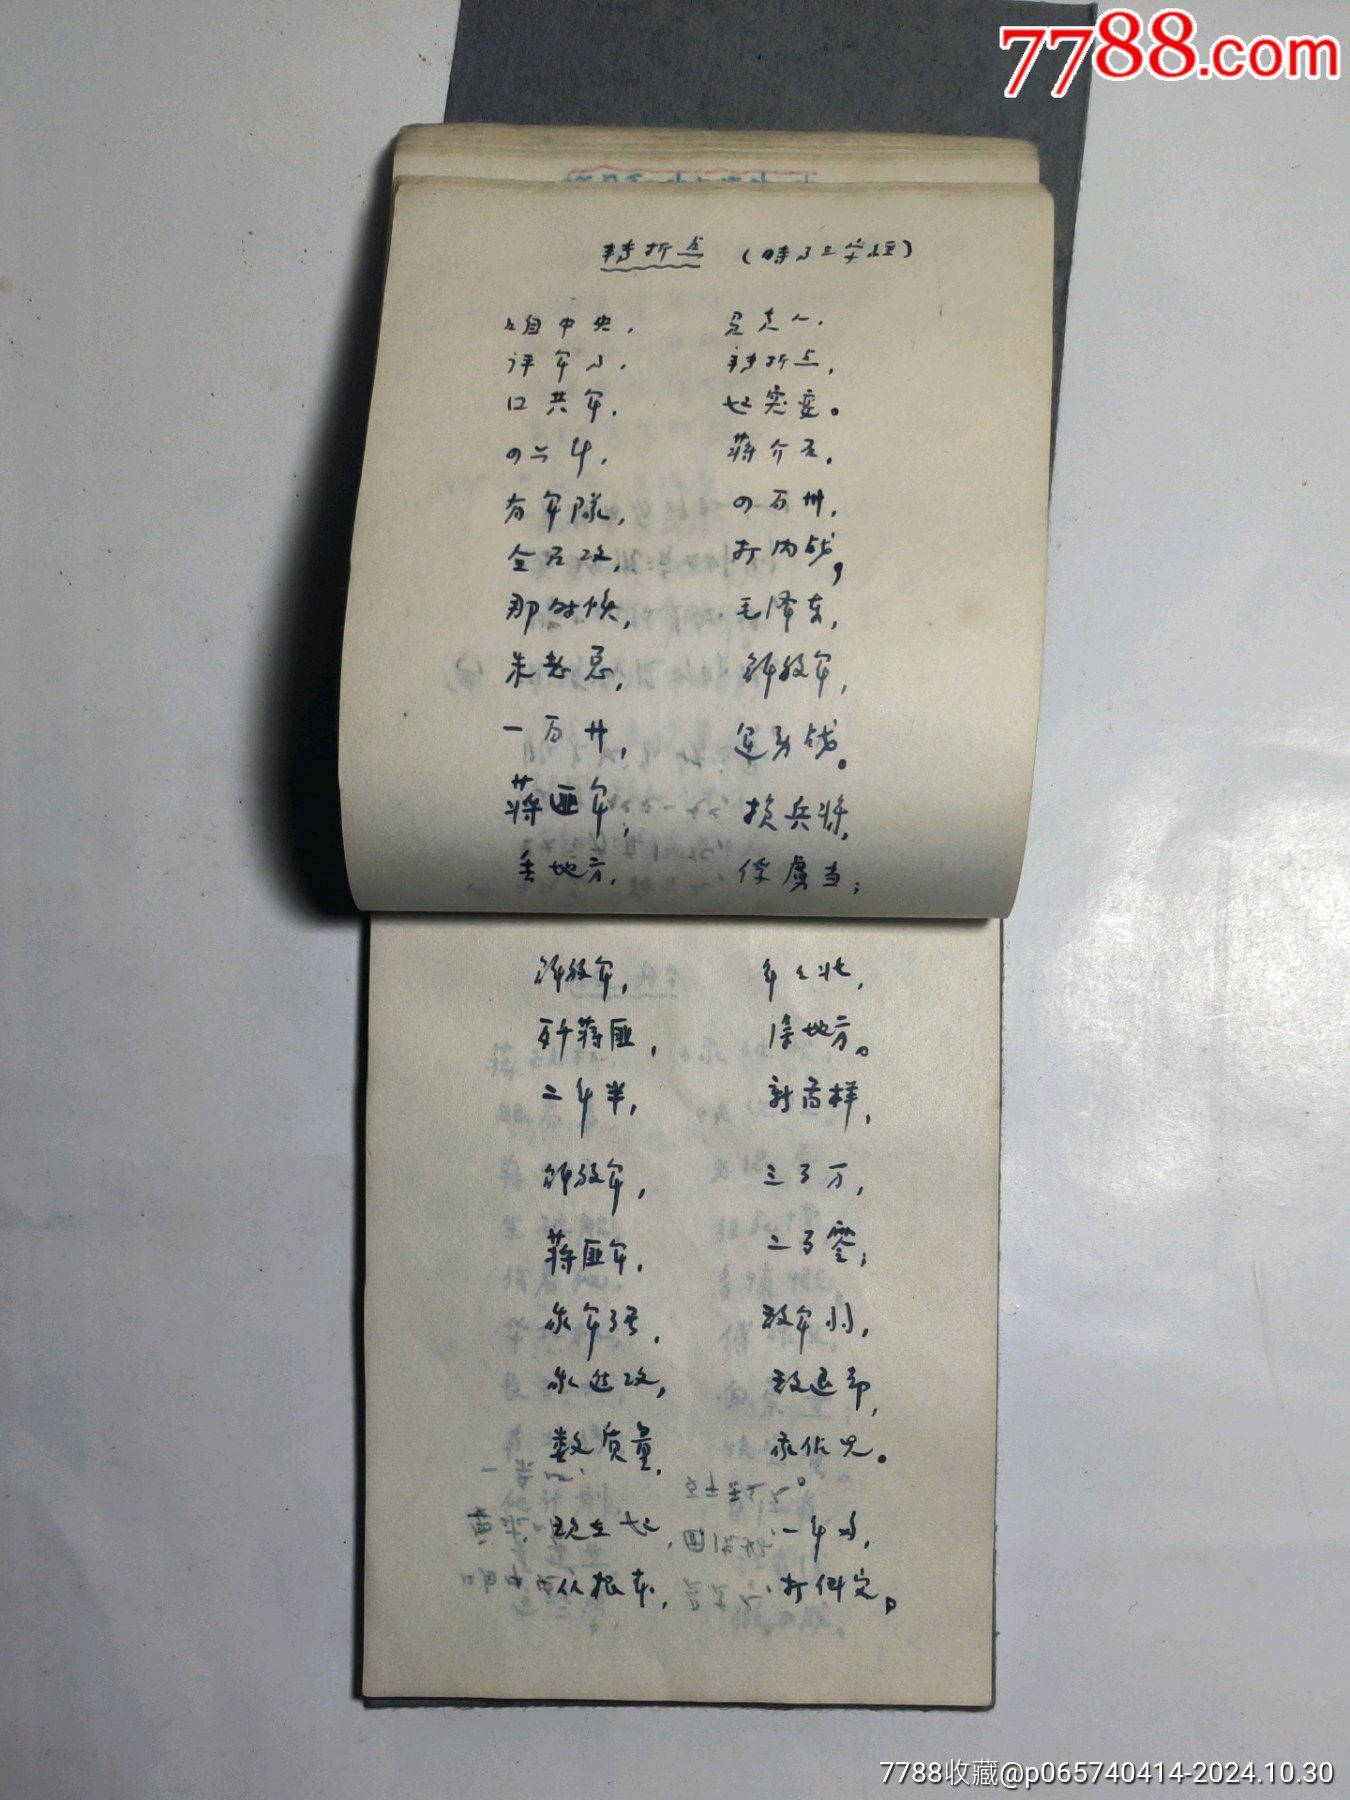 7788.com
转折点 (時事三字经)
咱中央, 负责人,
评军事, 转折点,
口共军, 起突变。
四六年, 蒋介石,
有军隊, 四百卅,
全面攻, 打内战,
那时候, 毛泽东,
朱老总, 解放军,
一百廿, 运动战。
蒋匪军, 损兵将,
丢地方, 俘虏当;
解放军, 年年壮,
歼蒋匪, 保地方。
二年半, 新当样,
解放军, 三百万,
蒋匪军, 二百零;
我军强, 敌军弱,
我进攻, 敌退却,
数质量, 我优先。
现在起, 一年多,
从根本, 打倒完。
7788收藏@p065740414-2024.10.30